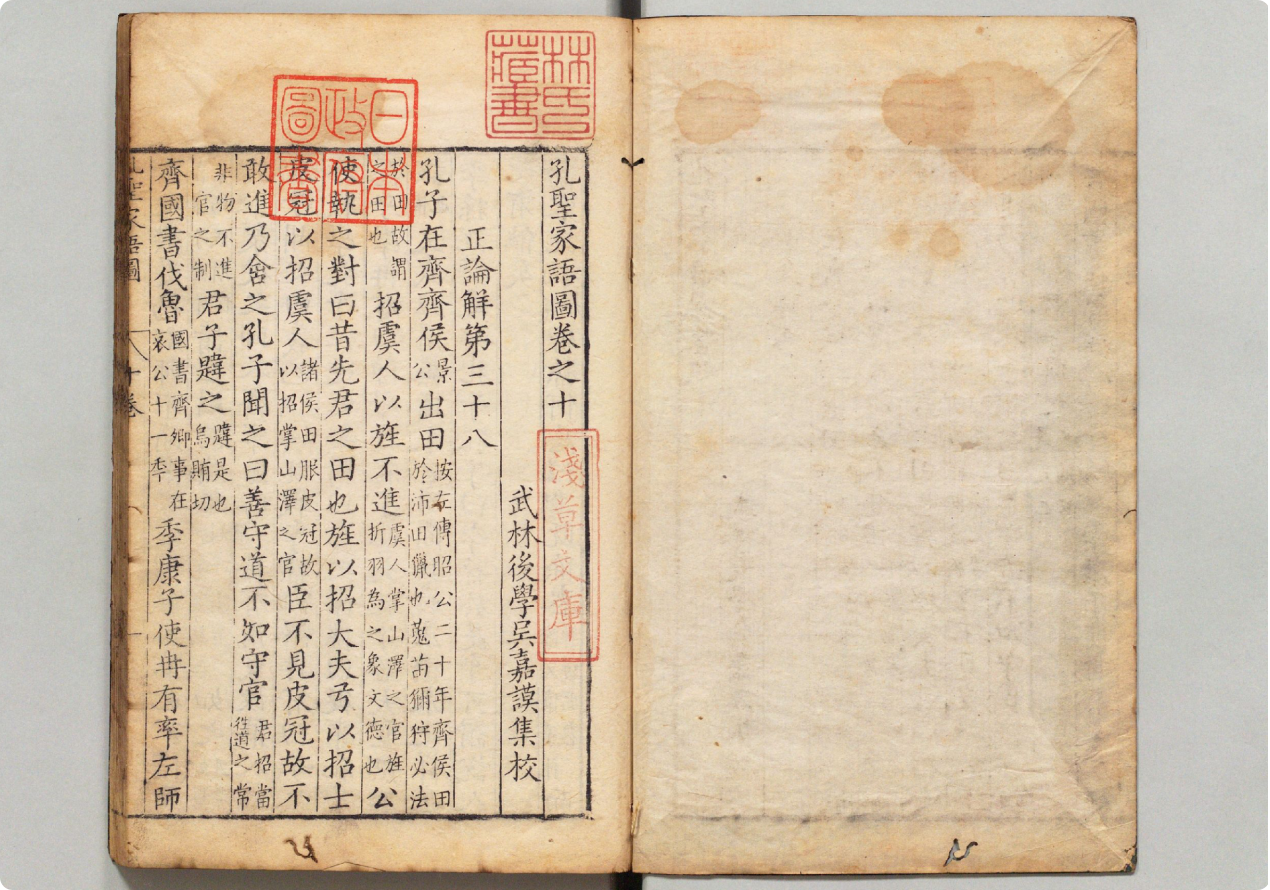 林氏藏書
日本政府圖書
淺草文庫
孔聖家語圖卷之十
武林後學吳嘉謨集校
正論解第三十八
孔子在齊齊侯景公出田按左傳昭公二十年齊侯田於沛田獵也蒐苗獮狩必法
於田故謂之田也招虞人以旌不進虞人掌山澤之官旌折羽為之象文德也公
使執之對曰昔先君之田也旌以招大夫弓以招士
皮冠以招虞人諸侯田服皮冠故以招掌山澤之官臣不見皮冠故不
敢進乃舍之孔子聞之曰善守道不如守官君招當徃道之常
非物不進官之制君子韙之韙是也烏賄切
齊國書伐魯國書齊卿事在哀公十一秊季康子使冉有率左師
孔聖家語圖 十卷 一